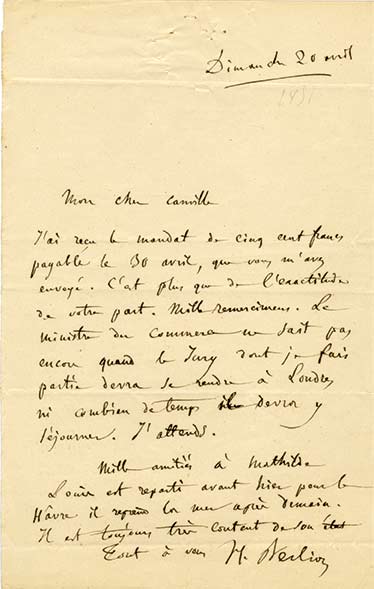 Dimanche 20 avril
1851
Mon cher camille
J'ai reçu le mandat de cinq cent francs
payable le 30 avril, que vous m'avez
envoyé. C'est plus que de l'exactitude
de votre part. Mille remercimens. Le
ministre du Commerce ne sait pas
encore quand le Jury dont je fais
partie devra se rendre à Londres
ni combien de temps devra y
séjourner. J'attends.
Mille amitiés à Mathilde
Louis est reparti avant hier pour le
Hâvre il reprend la mer après demain.
Il est toujours très content de son
Tout à vous H. Berlioz